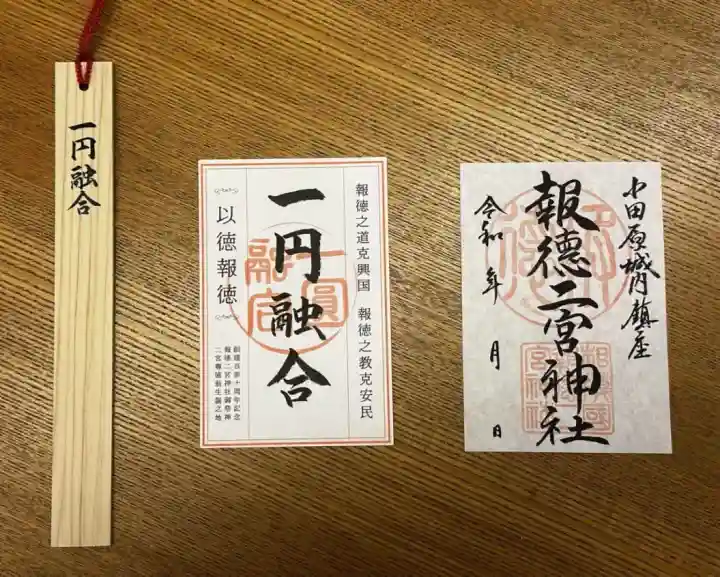 一円融合
報徳之道克興国 報徳之教克安民
一円融合
一圓融合
以徳報徳
報徳二宮神社御祭神
二宮尊徳翁生誕之地
小田原城内鎮座
報徳二宮神社
令和 年 月 日